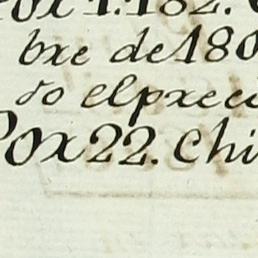 Por 1.182.
bre de 180
do el preci
Por 22. chi